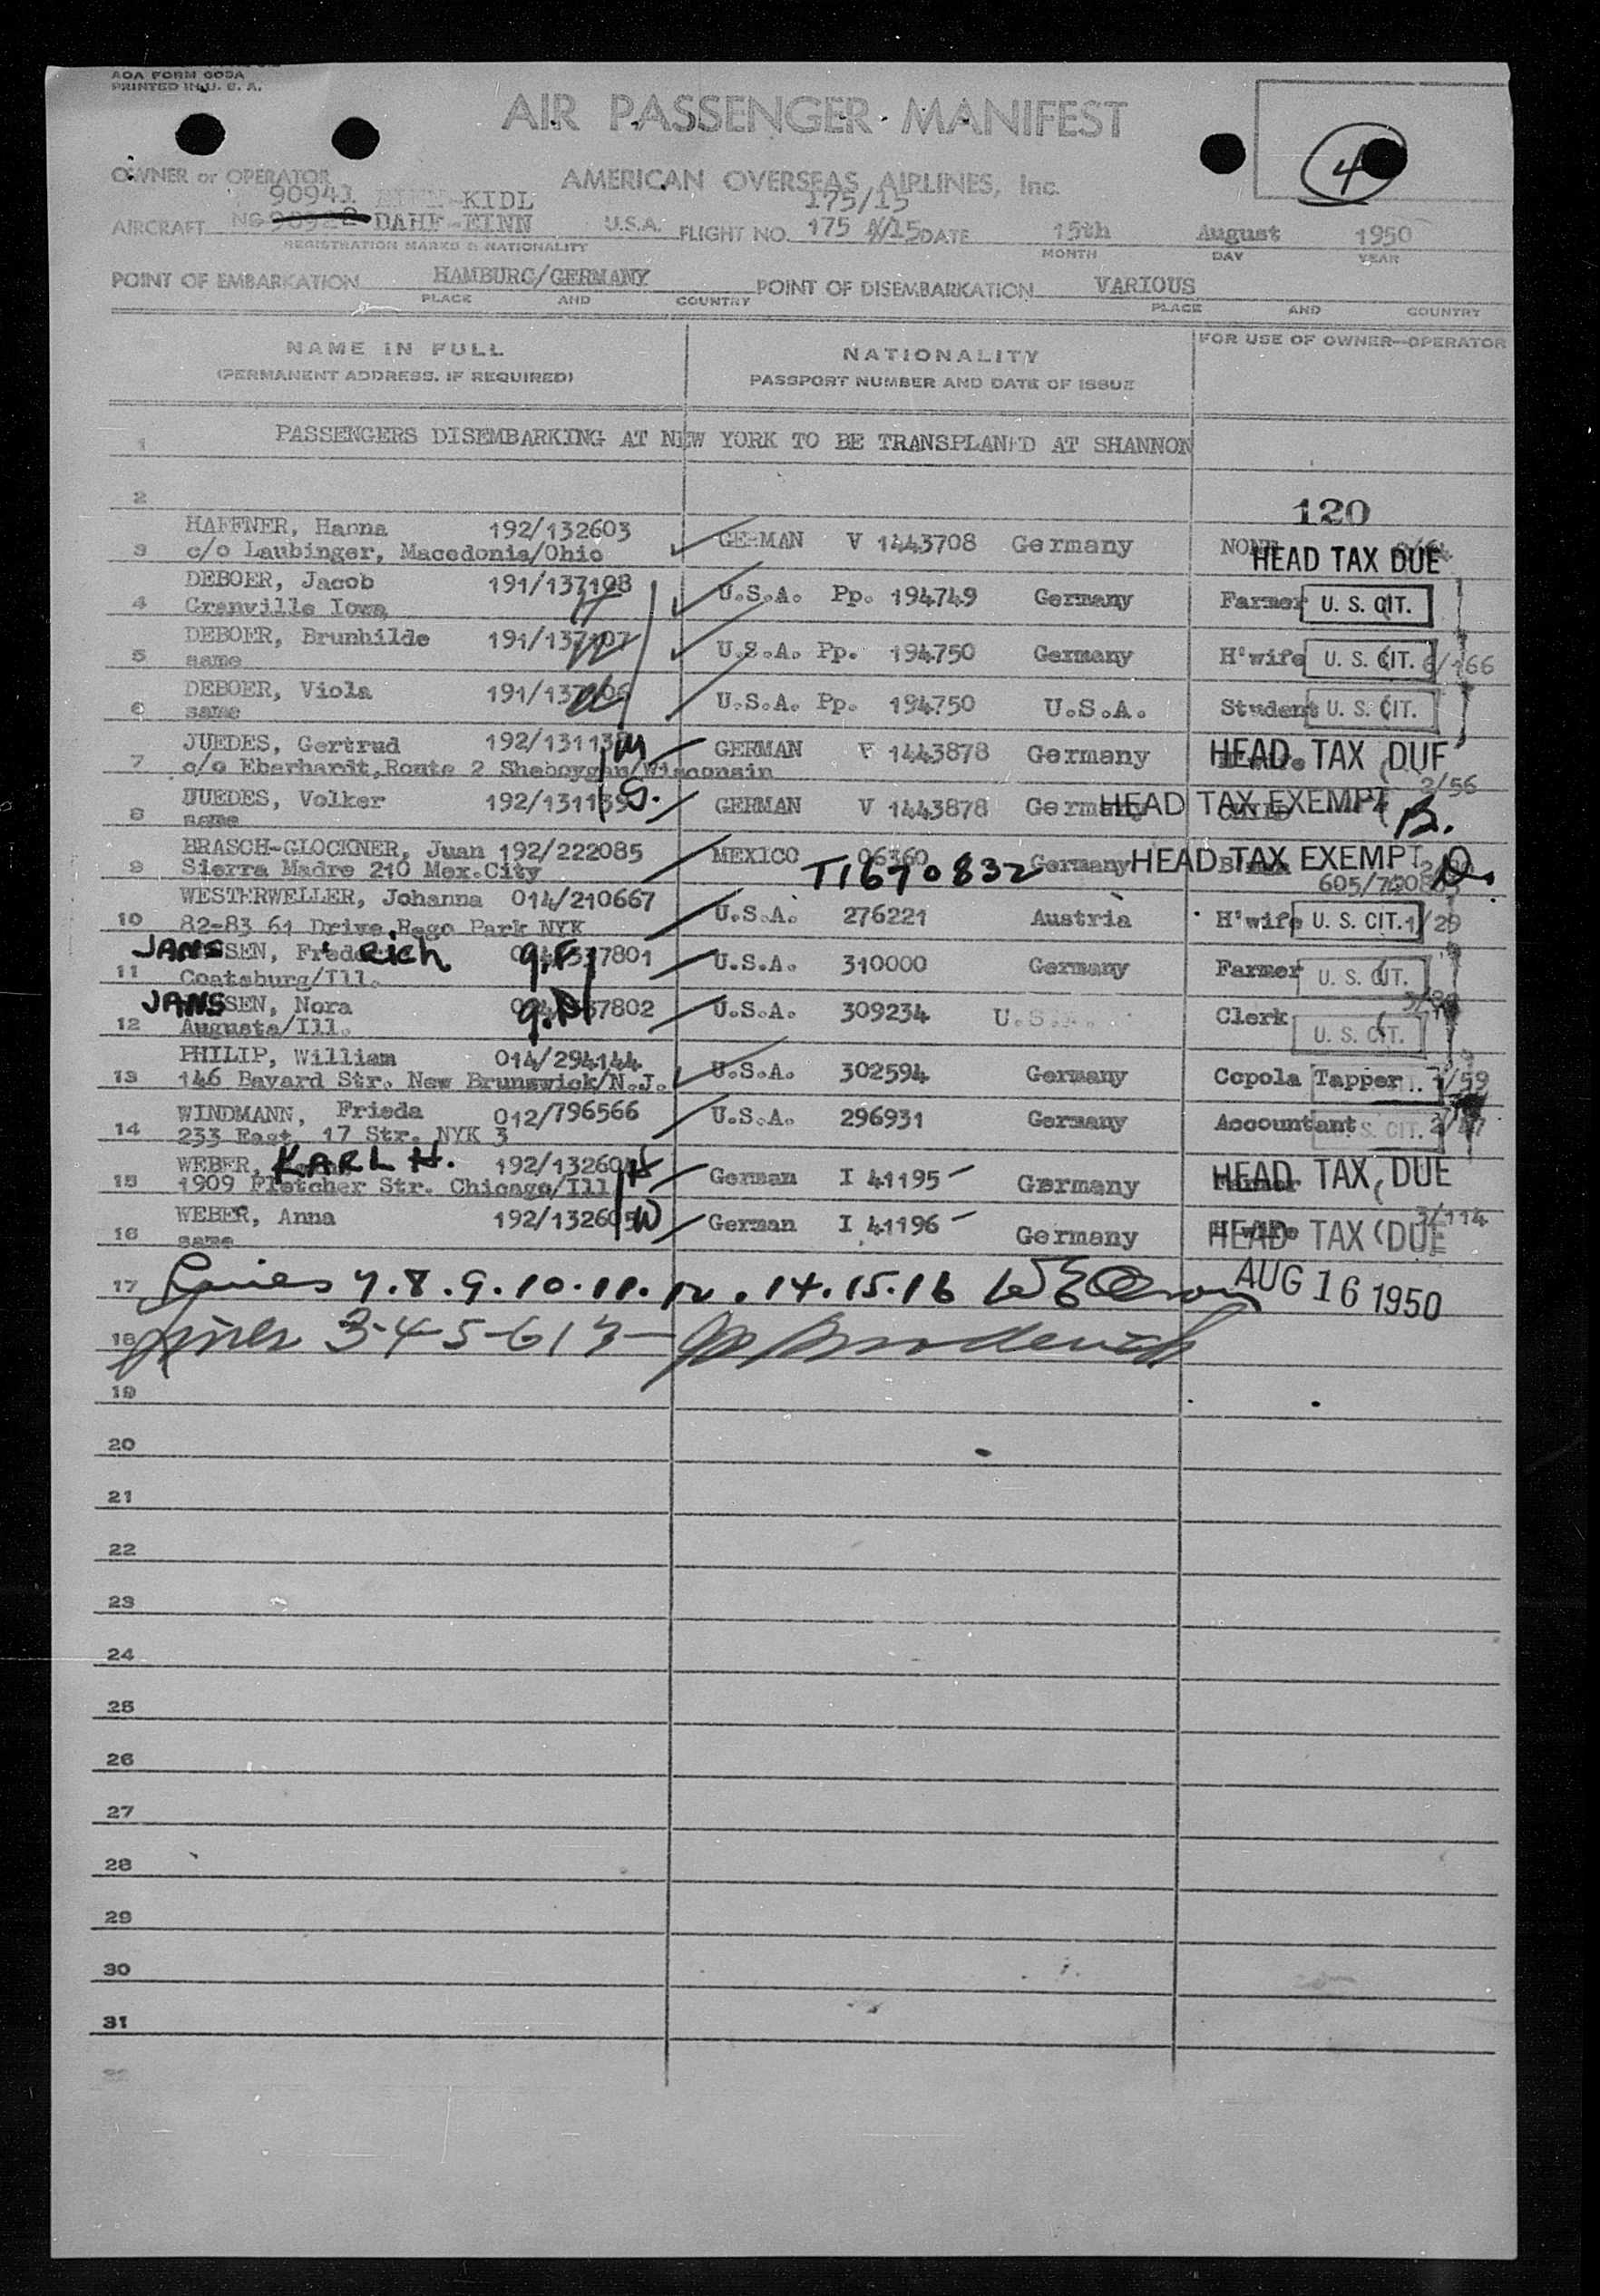 AOA FORM 605A
PRINTED IN U. S. A.
AIR PASSENGER MANIFEST
4
OWNER or OPERATOR AMERICAN OVERSEAS AIRLINES, Inc.
90941 -KIDL 175/15
AIRCRAFT DAHF-EINN U.S.A. FLIGHT NO. 175 /15 DATE 15th August 1950
REGISTRATION MARKS & NATIONALITY MONTH DAY YEAR
POINT OF EMBARKATION HAMBURG/GERMANY POINT OF DISEMBARKATION VARIOUS
PLACE AND COUNTRY PLACE AND COUNTRY
NAME IN FULL NATIONALITY FOR USE OF OWNER—OPERATOR
(PERMANENT ADDRESS, IF REQUIRED) PASSPORT NUMBER AND DATE OF ISSUE
1 PASSENGERS DISEMBARKING AT NEW YORK TO BE TRANSPLANED AT SHANNON
2 120
HAFFNER, Hanna 192/132603 GERMAN V 1443708 Germany NONE HEAD TAX DUE
3 c/o Laubinger, Macedonia/Ohio
DEBOER, Jacob 191/137108 U.S.A. Pp. 194749 Germany Farmer U. S. CIT.
4 Granville Iowa
DEBOER, Brunhilde 191/137107 U.S.A. Pp. 194750 Germany H'wife U. S. CIT. 6/166
5 same
DEBOER, Viola 191/137106 U.S.A. Pp. 194750 U.S.A. Student U. S. CIT.
6 same
JUEDES, Gertrud 192/131138 GERMAN V 1443878 Germany HEAD TAX DUE
7 c/o Eberhardt, Route 2 Sheboygan/Wisconsin 2/56
JUEDES, Volker 192/131139 S. GERMAN V 1443878 Germany HEAD TAX EXEMPT B.
8 same
BRASCH-GLOCKNER, Juan 192/222085 MEXICO 06360 Germany HEAD TAX EXEMPT D.
9 Sierra Madre 210 Mex.City T1670832
WESTERWELLER, Johanna 014/210667 U.S.A. 276221 Austria H'wife U. S. CIT. 1/29
10 82-83 61 Drive, Rego Park NYK
JANSSEN, Frederich 7801 U.S.A. 310000 Germany Farmer U. S. CIT.
11 Coatsburg/Ill.
JANSSEN, Nora 7802 U.S.A. 309234 U.S.A. Clerk U. S. CIT.
12 Augusta/Ill.
PHILIP, William 014/294144 U.S.A. 302594 Germany Copola Tapper /59
13 146 Bayard Str. New Brunswick/N.J.
WINDMANN, Frieda 012/796566 U.S.A. 296931 Germany Accountant U. S. CIT.
14 233 East 17 Str. NYK 3
WEBER, KARL H. 192/13260 German I 41195 Germany HEAD TAX DUE
15 1909 Fletcher Str. Chicago/Ill
WEBER, Anna 192/132605 W German I 41196 Germany H'wife HEAD TAX DUE 3/114
16 same
17 Lines 7.8.9.10.11.12.14.15.16 AUG 16 1950
18 Lines 3-4-5-6 13
19
20
21
22
23
24
25
26
27
28
29
30
31